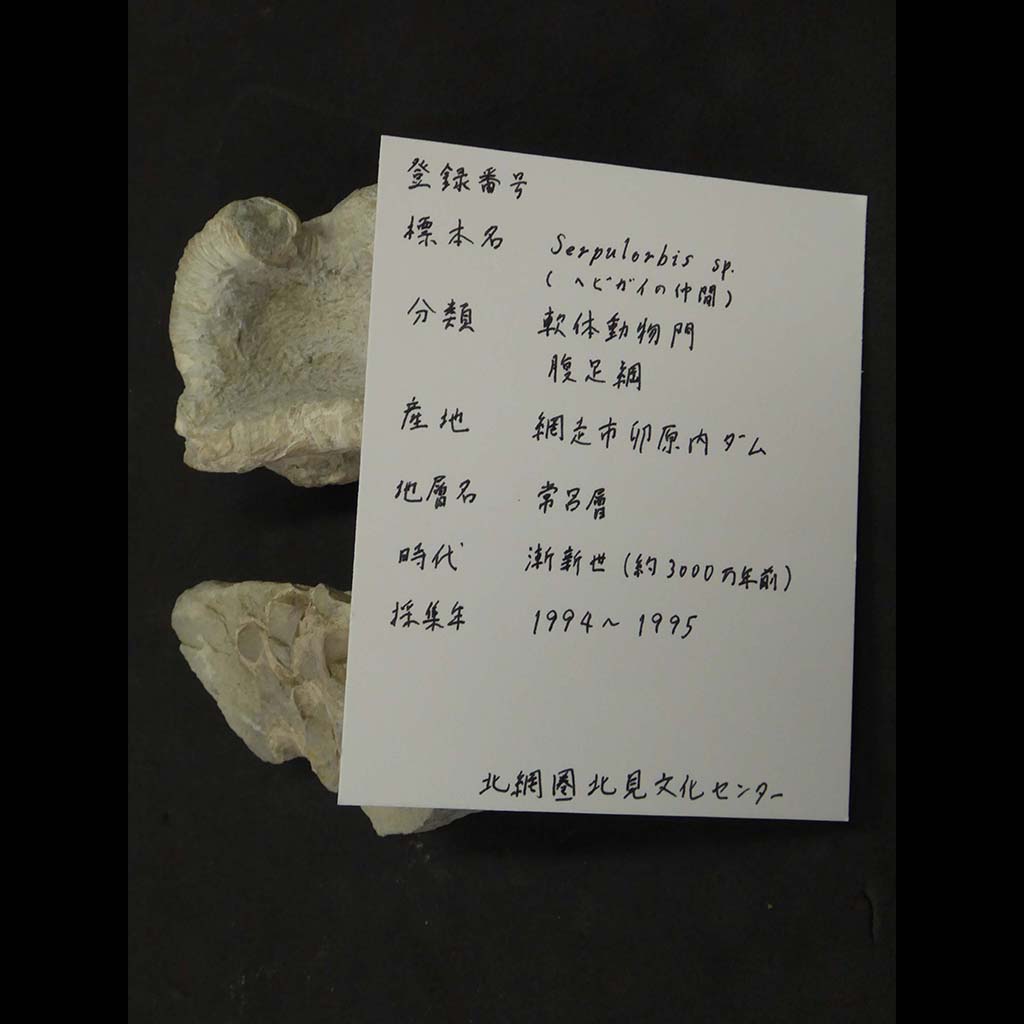 登録番号
標本名 Serpulorbis sp.
(ヘビガイの仲間)
分類 軟体動物門
腹足綱
産地 網走市卯原内ダム
地層名 常呂層
時代 漸新世(約3000万年前)
採集年 1994~1995
北網圏北見文化センター